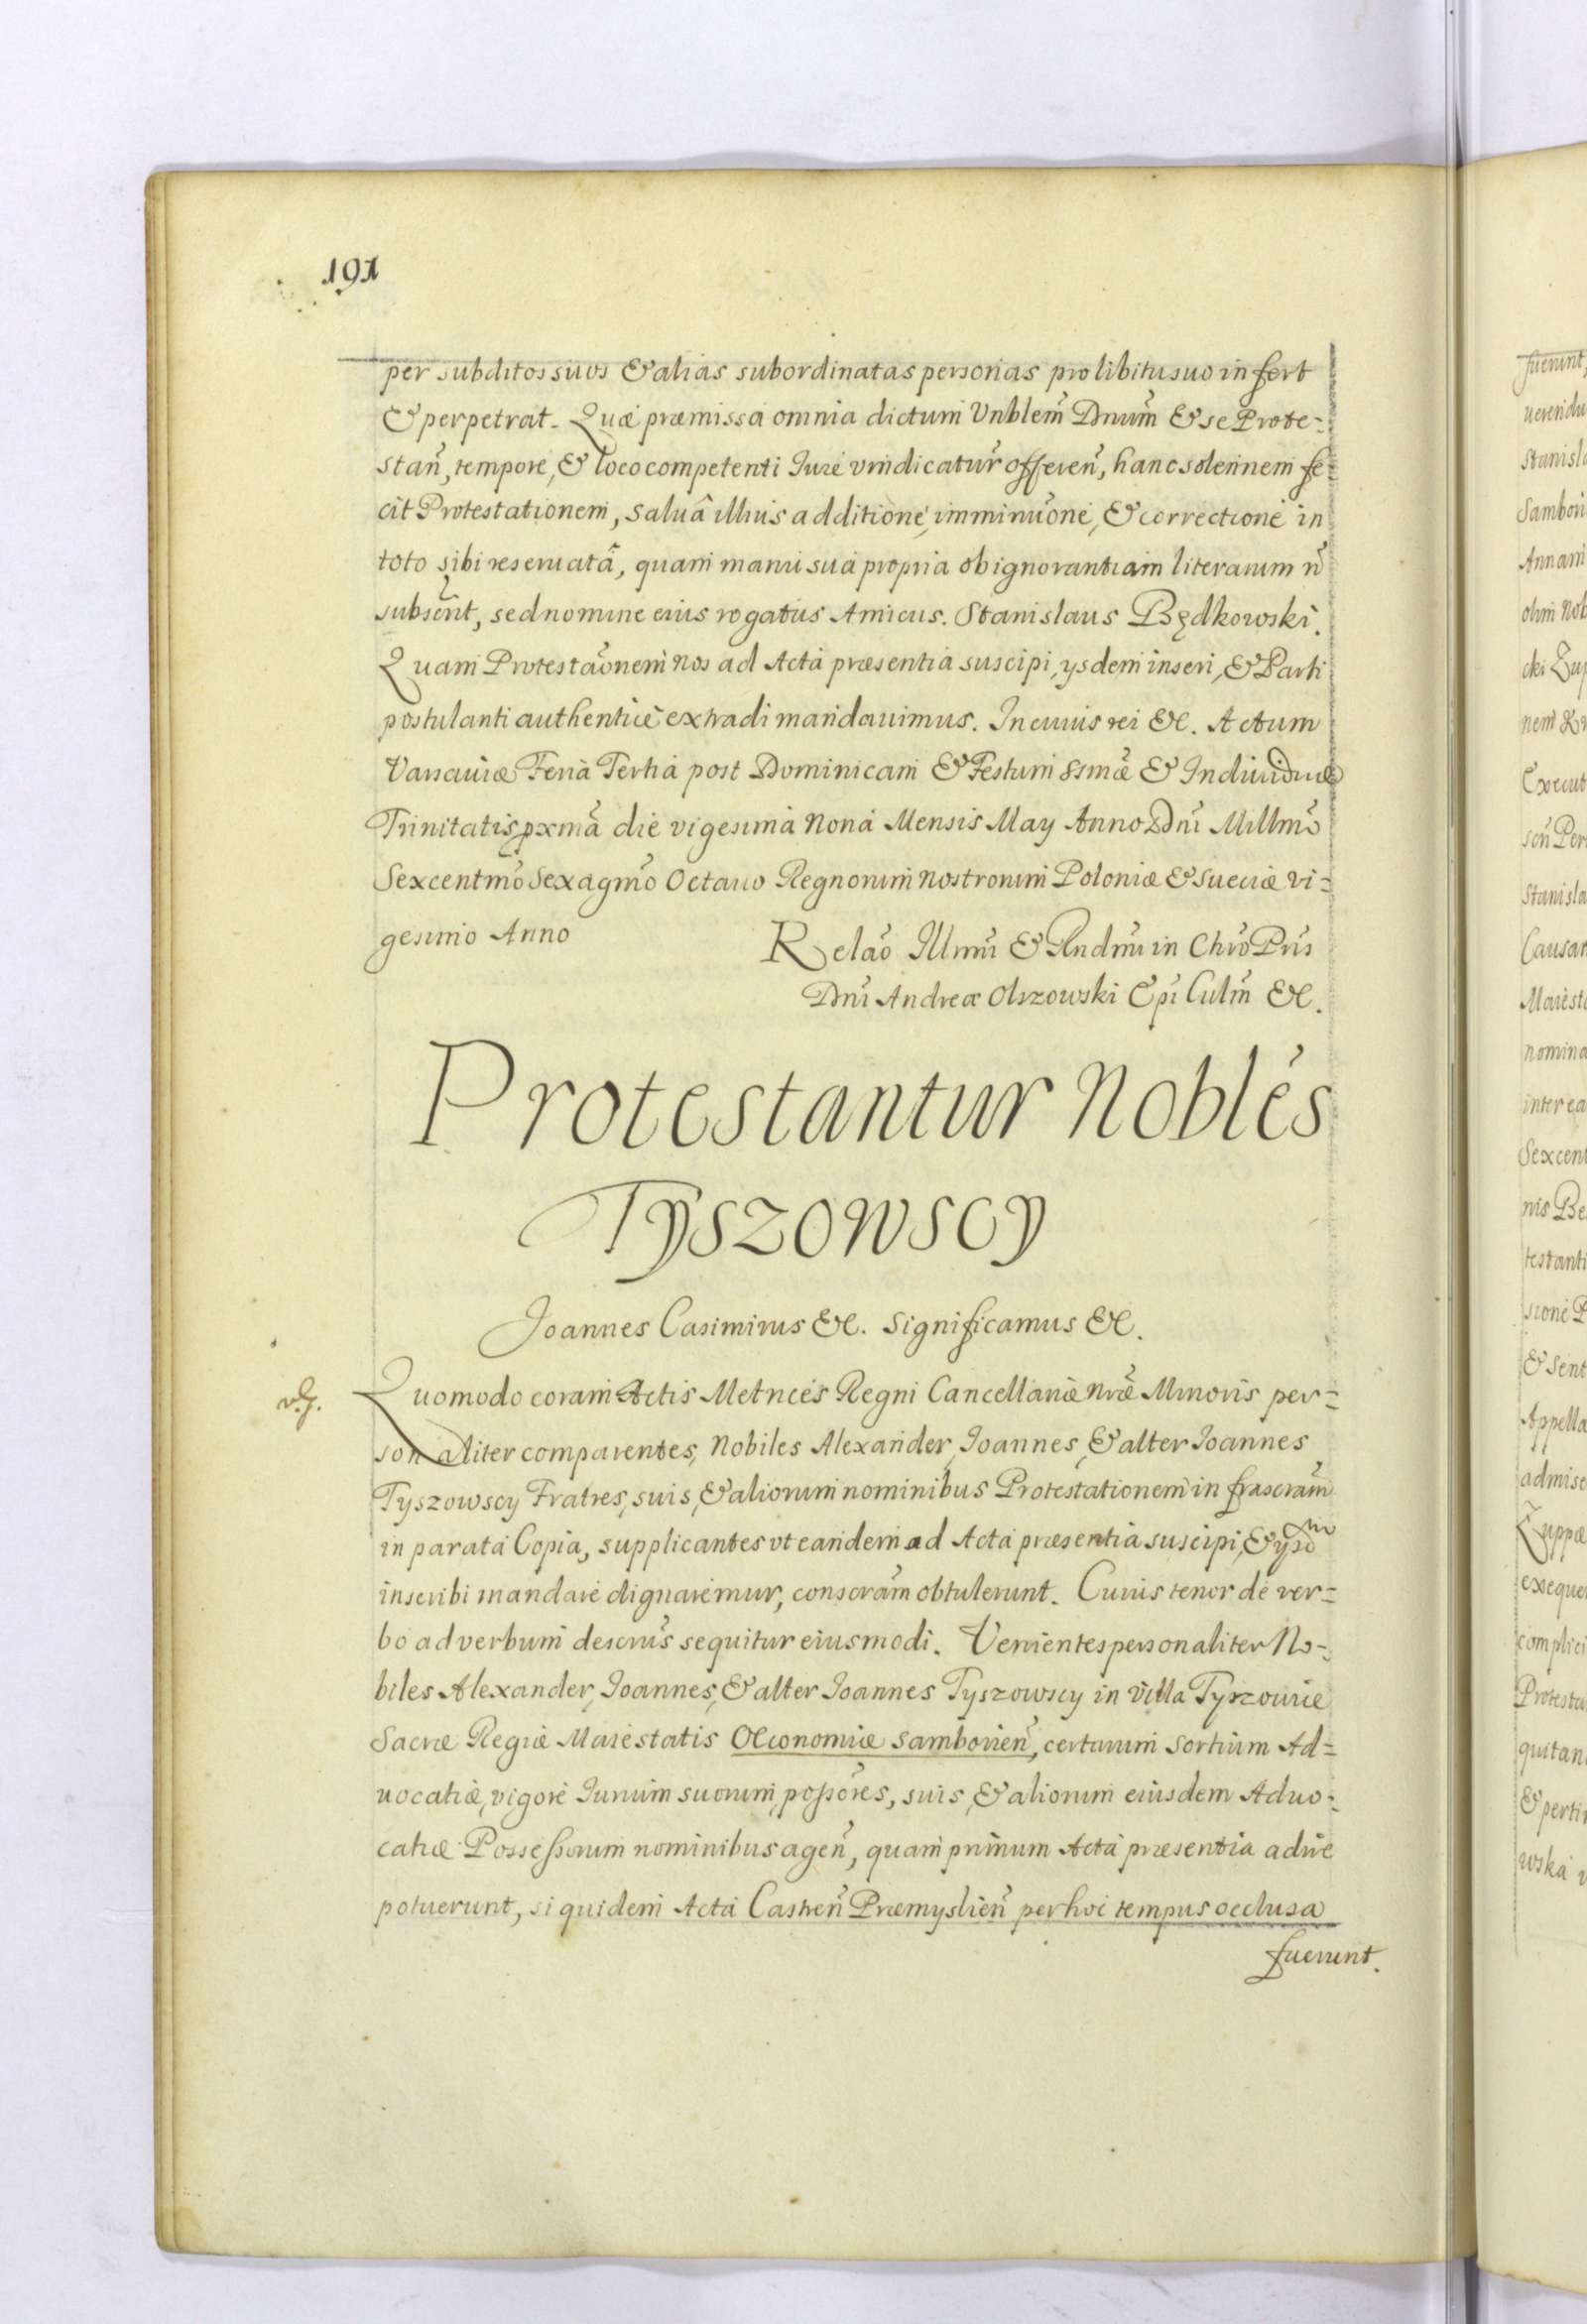 191
per subditos suos & alias subordinatas personas pro libitu suo infert
& perpetrat. Quæ præmissa omnia dictum Vnblem̃ Dnum̃ & se Prote=
stañ, tempore, & loco competenti Iure vindicatur̃ offereñ, hanc solennem fe=
cit Protestationem, saluâ illius additione, imminuõne, & correctione in
toto sibi reseruatâ, quam manu sua propria ob ignorantiam literarum ñ
subscr̃nt, sed nomine eius rogatus Amicus. Stanislaus Będkowski.
Quam Protestaõnem nos ad Acta præsentia suscipi, ysdem inseri, & Parti
postulanti authenticè extradi mandauimus. In cuius rei &c. Actum
Varsauiæ Feria Tertia post Dominicam & Festum SSmæ̃ & Indiuiduæ
Trinitatis pxmã die vigesima nona Mensis May Anno Dnĩ Millmõ
Sexcentmõ Sexagmõ Octauo Regnorum nostrorum Poloniæ & Sueciæ vi=
gesimo Anno
Relaõ Illmĩ & Rndmĩ in Chrõ Prĩs
Dnĩ Andreæ Olszowski Epĩ Culm̃ &c.
Protestantur Nobles̃
Tyszowscy
Joannes Casimirus &c. Significamus &c.
Quomodo coram Actis Metrices Regni Cancellariæ Nræ̃ Minoris per=
sonaliter comparentes, Nobiles Alexander, Joannes, & alter Joannes
Tyszowscy Fratres, suis, & aliorum nominibus Protestationem infrascram̃
in parata Copia, supplicantes vt eandem ad Acta præsentia suscipi, &
inscribi mandare dignaremur, conscram̃ obtulerunt. Cuius tenor de ver=
bo ad verbum descrus̃ sequitur eiusmodi. Venientes personaliter No=
biles Alexander, Joannes, & alter Joannes Tyszowscy in Villa Tyszowie
Sacræ Regiæ Maiestatis Oeconomiæ Samborieñ, certarum Sortium Ad=
uocatiæ, vigore Iurium suorum, possores̃, suis, & aliorum eiusdem Aduo=
catiæ Possessorum nominibus ageñ, quam primum Acta præsentia adire
potuerunt, siquidem Acta Castreñ Præmyslieñ per hoc tempus occlusa
fuerunt.